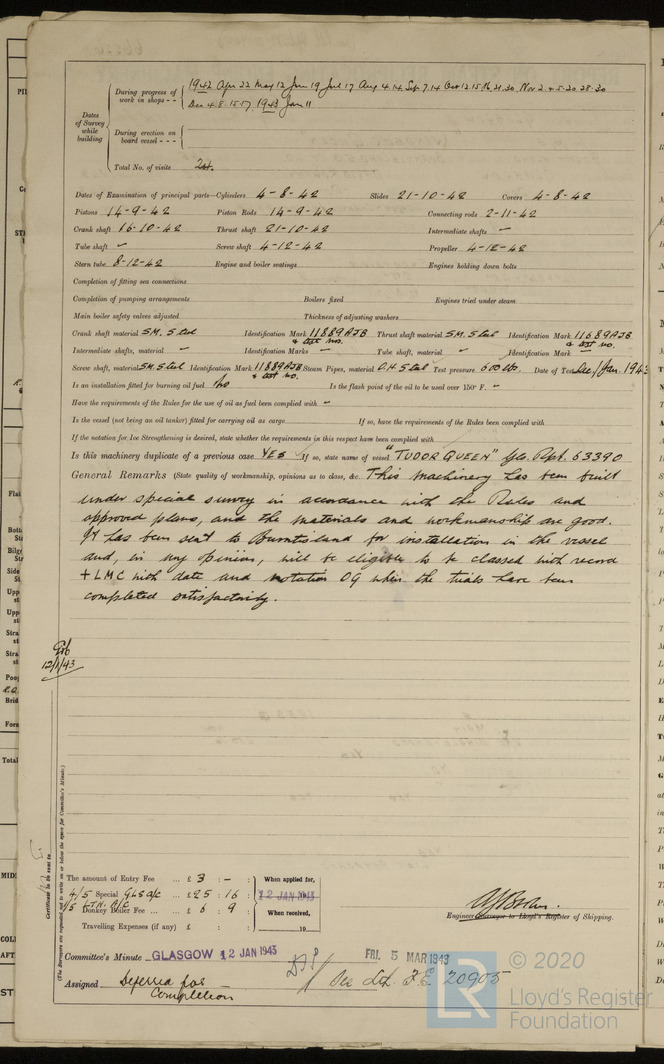 Dates of Survey while building
During progress of work in shops - - 1942 Apr 22 May 12 Jun 19 Jul 17 Aug 4.14 Sep 7.14 Oct 12.15.16.21.30 Nov 2. 20.28.30
Dec 4.8.15.17. 1943 Jan 11
During erection on board vessel - - -
Total No. of visits 24.
Dates of Examination of principal parts—Cylinders 4-8-42 Slides 21-10-42 Covers 4-8-42
Pistons 14-9-42 Piston Rods 14-9-42 Connecting rods 2-11-42
Crank shaft 16-10-42 Thrust shaft 21-10-42 Intermediate shafts –
Tube shaft – Screw shaft 4-12-42 Propeller 4-12-42
Stern tube 8-12-42 Engine and boiler seatings Engines holding down bolts
Completion of fitting sea connections
Completion of pumping arrangements Boilers fixed Engines tried under steam
Main boiler safety valves adjusted Thickness of adjusting washers
Crank shaft material S.M. Steel Identification Mark 11889AJB & test no. Thrust shaft material S.M. Steel Identification Mark 11689AJB & test no.
Intermediate shafts, material – Identification Marks – Tube shaft, material – Identification Mark –
Screw shaft, material S.M. Steel Identification Mark 11889AJB & test no. Steam Pipes, material O.H. Steel Test pressure 600 lbs. Date of Test Dec/Jan. 1943
Is an installation fitted for burning oil fuel No Is the flash point of the oil to be used over 150° F. –
Have the requirements of the Rules for the use of oil as fuel been complied with –
Is the vessel (not being an oil tanker) fitted for carrying oil as cargo If so, have the requirements of the Rules been complied with
If the notation for Ice Strengthening is desired, state whether the requirements in this respect have been complied with
Is this machinery duplicate of a previous case YES If so, state name of vessel "TUDOR QUEEN" Gls. Rpt. 63390
General Remarks (State quality of workmanship, opinions as to class, &c. This machinery has been built
under special survey in accordance with the Rules and
approved plans, and the materials and workmanship are good.
It has been sent to Burntisland for installation in the vessel
and, in my opinion, will be eligible to be classed with record
+LMC with date and notation OG when the trials have been
completed satisfactorily.
12/1/43
Certificate to be sent to
(The Surveyors are requested not to write on or below the space for Committee's Minute.)
The amount of Entry Fee ... £ 3 : – :
4/5 Special GLS a/c ... £ 25 : 16 :
1/5 LTH. A/C
Donkey Boiler Fee ... ... £ 6 : 9 :
Travelling Expenses (if any) £ : :
When applied for,
12 JAN 1943
When received,
19
Engineer Surveyor to Lloyd's Register of Shipping.
Committee's Minute GLASGOW 12 JAN 1943
FRI. 5 MAR 1943
Assigned Deferred for Completion
See Lth. F.E. 20905
© 2020
LR
Lloyd's Register
Foundation